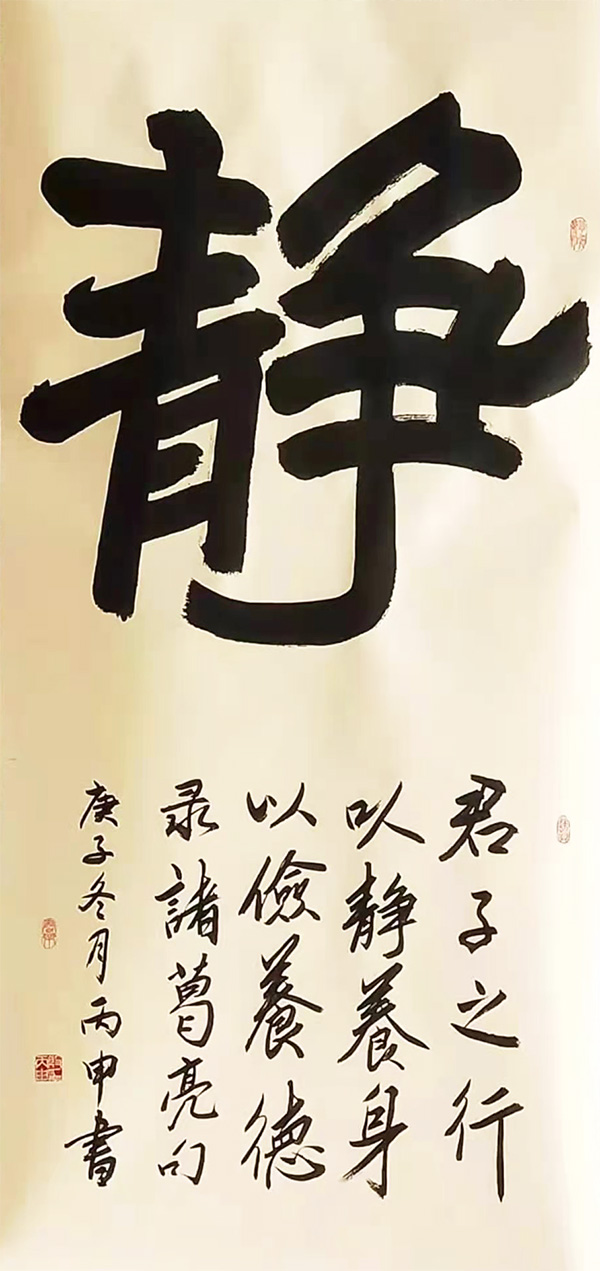 静
君子之行
以静養身
以儉養德
录諸葛亮句
庚子冬月丙申書